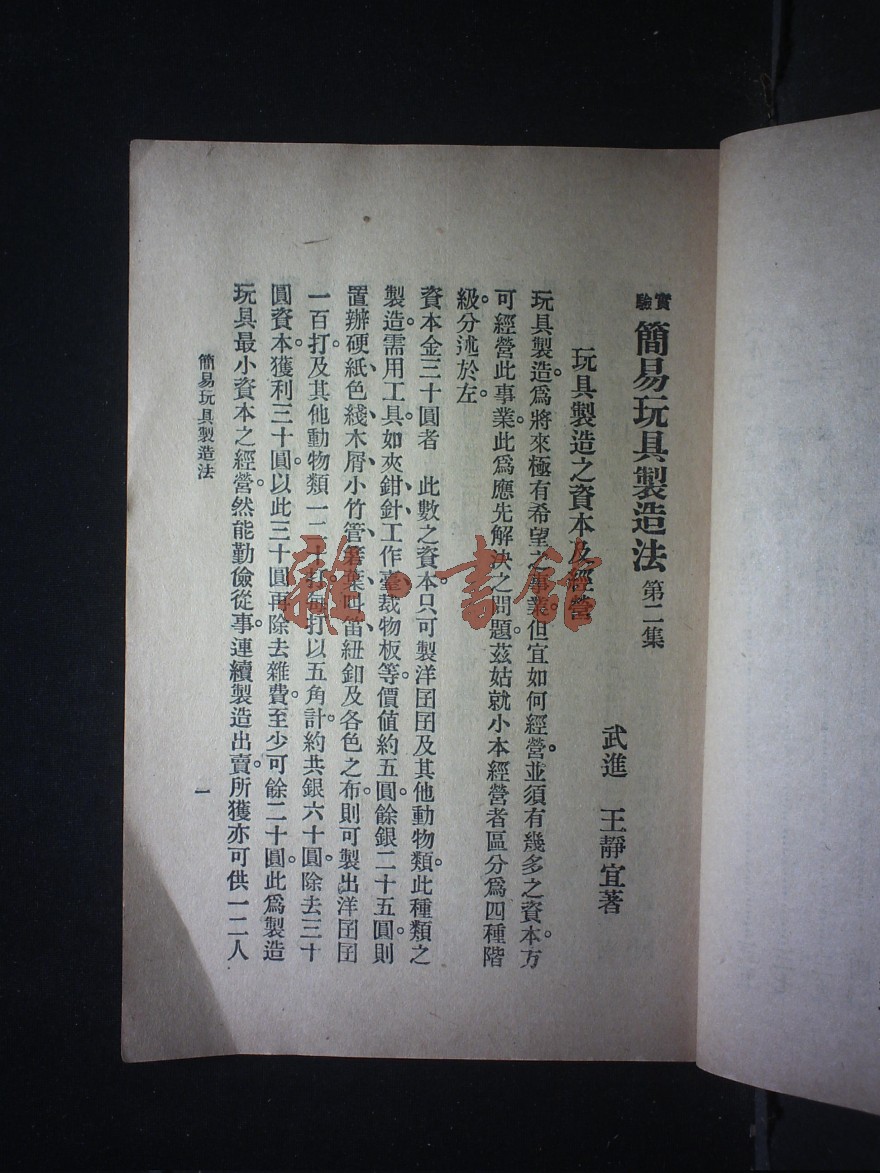 實驗 簡易玩具製造法 第二集
武進 王靜宜著
玩具製造之資本及經營
玩具製造。爲將來極有希望之事業。但宜如何經營。並須有幾多之資本。方
可經營此事業。此爲應先解決之問題。茲姑就小本經營者。區分爲四種階
級。分述於左。
資本金三十圓者 此數之資本。只可製洋囝囝及其他動物類。此種類之
製造。需用工具。如夾鉗、針、工作臺、裁物板等。價值約五圓。餘銀二十五圓。則
置辦硬紙、色綫、木屑、小竹管、箬葉、叫笛、紐釦及各色之布。則可製出洋囝囝
一百打。及其他動物類一二十打。每打以五角計。約共銀六十圓。除去三十
圓資本。獲利三十圓。以此三十圓。再除去雜費。至少可餘二十圓。此爲製造
玩具最小資本之經營。然能勤儉從事。連續製造出賣。所獲亦可供一二人
簡易玩具製造法
一
雜·書館